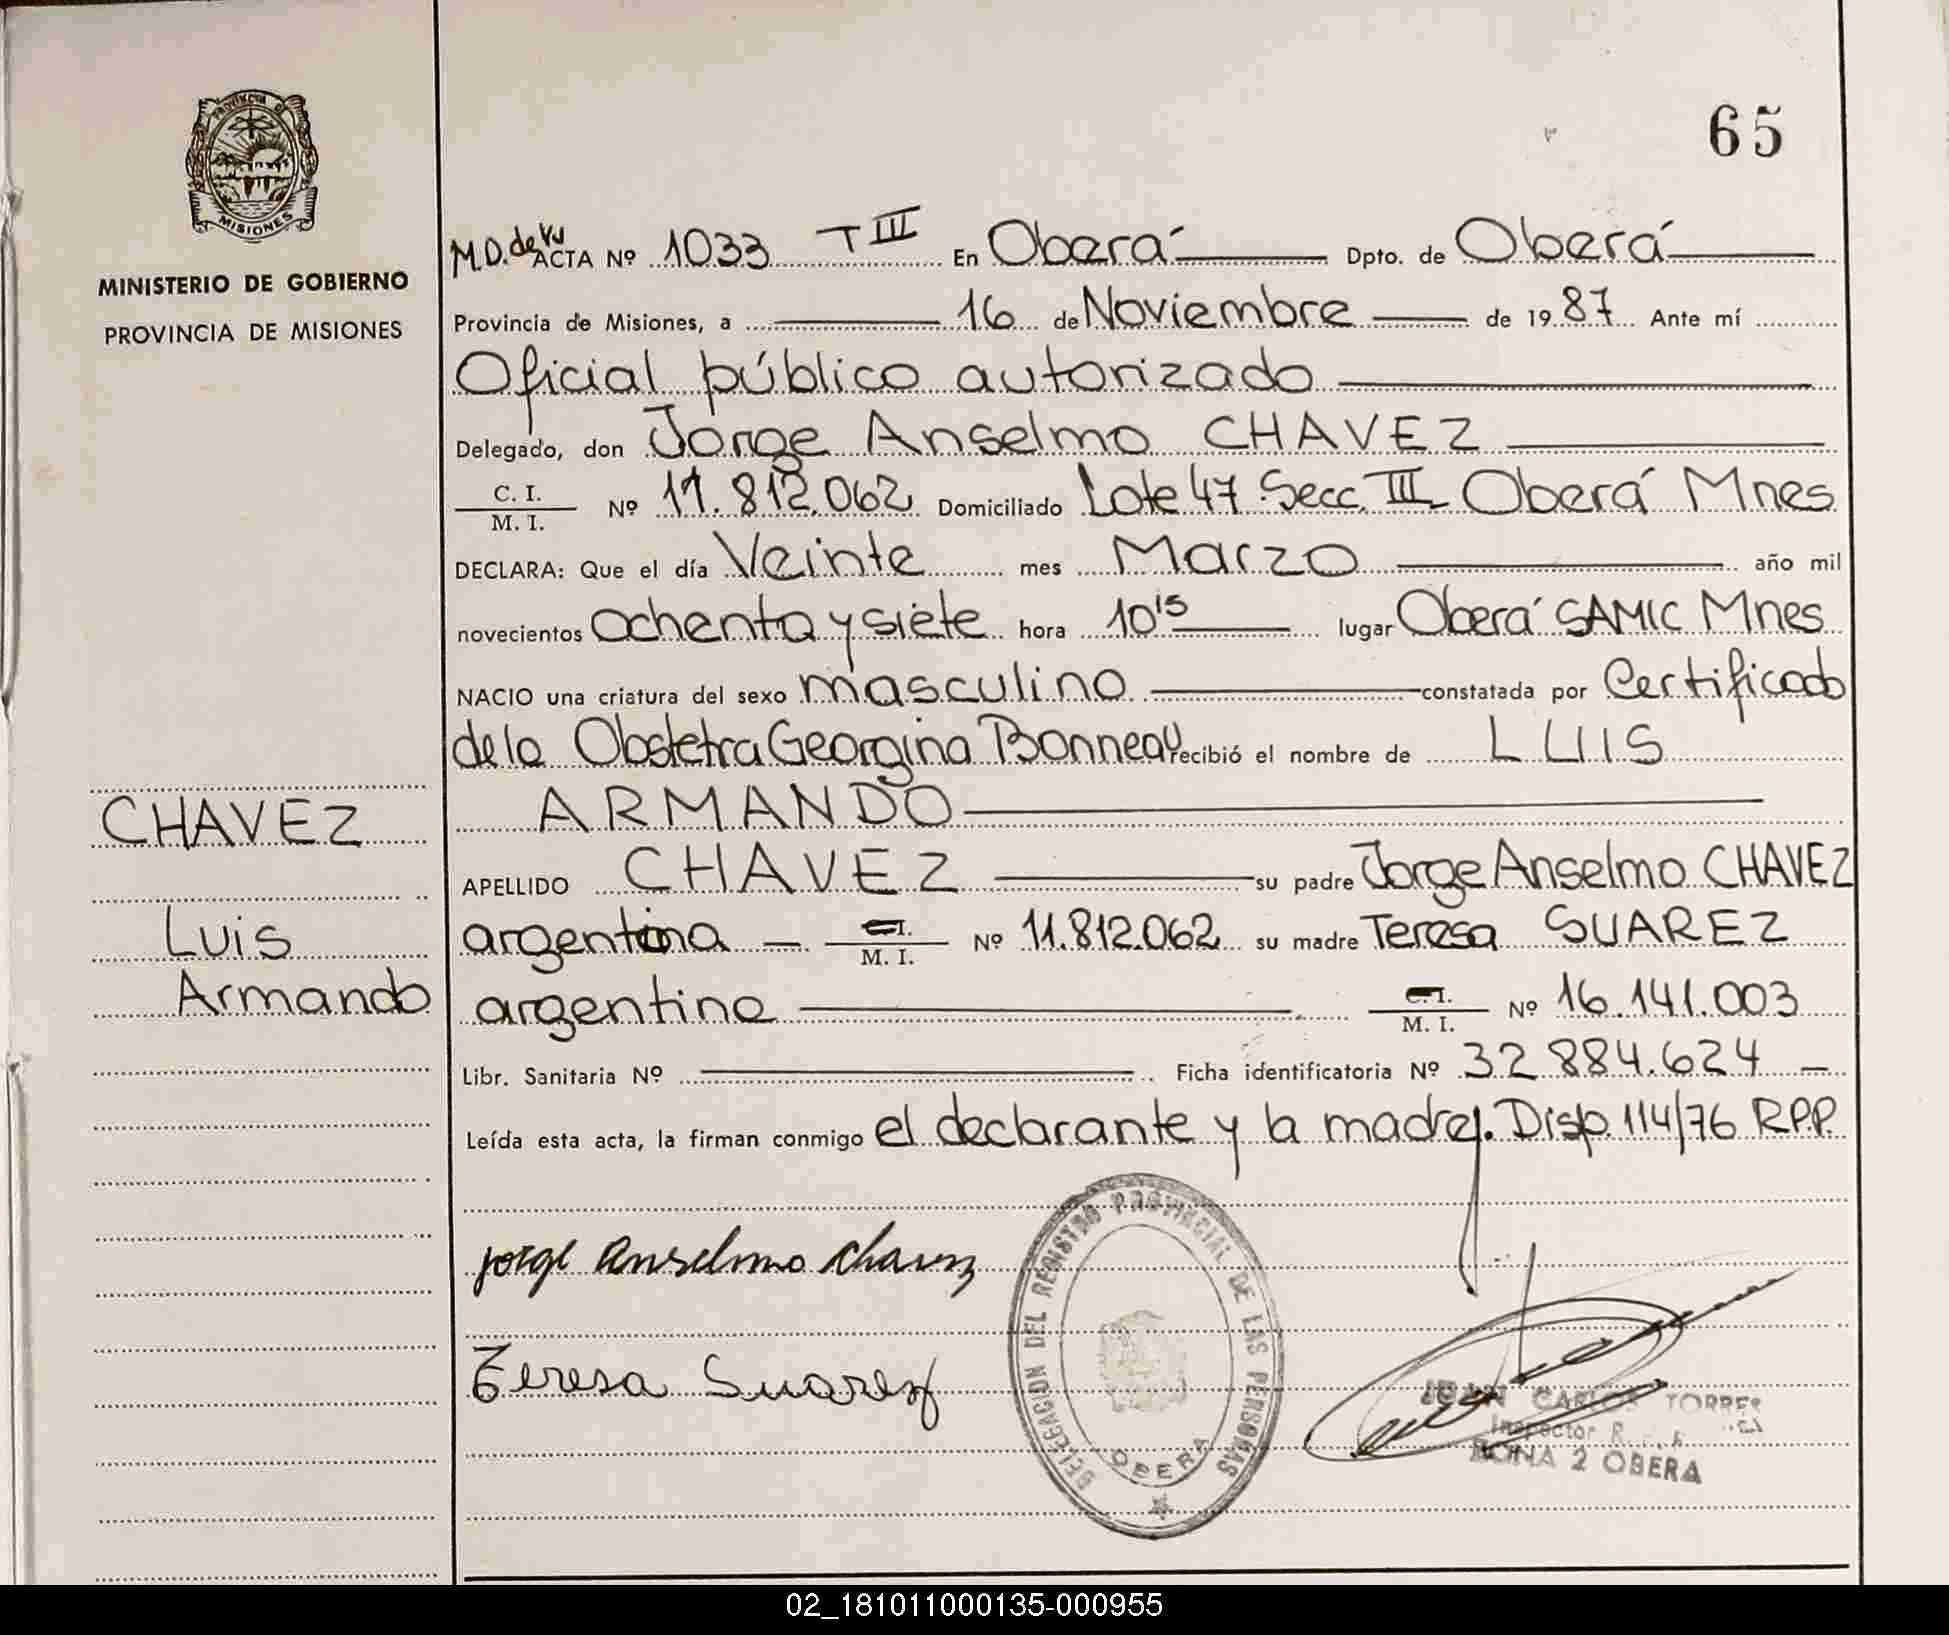 PROVINCIA DE
MISIONES
MINISTERIO DE GOBIERNO
PROVINCIA DE MISIONES
CHAVEZ
Luis
Armando
65
M.D. de ACTA Nº 1033 T III En Oberá Dpto. de Oberá
Provincia de Misiones, a 16 de Noviembre de 1987 Ante mí
Oficial público autorizado
Delegado, don Jorge Anselmo CHAVEZ
C. I.
M. I. Nº 11.812.062 Domiciliado Lote 47 Secc. III Oberá Mnes
DECLARA: Que el día Veinte mes Marzo año mil
novecientos ochenta y siete hora 10 15 lugar Oberá SAMIC Mnes
NACIO una criatura del sexo masculino constatada por Certificado
de la Obstetra Georgina Bonneau recibió el nombre de LUIS
ARMANDO
APELLIDO CHAVEZ su padre Jorge Anselmo CHAVEZ
argentina C.I.
M. I. Nº 11.812.062 su madre Teresa SUAREZ
argentina C.I.
M. I. Nº 16.141.003
Libr. Sanitaria Nº Ficha identificatoria Nº 32.884.624
Leída esta acta, la firman conmigo el declarante y la madre. Disp. 114/76 R.P.P.
Jorge Anselmo Chavez
Teresa Suarez
DELEGACION DEL REGISTRO PROVINCIAL DE LAS PERSONAS
OBERA
JUAN CARLOS TORRES
Inspector
ZONA 2 OBERA
02_181011000135-000955